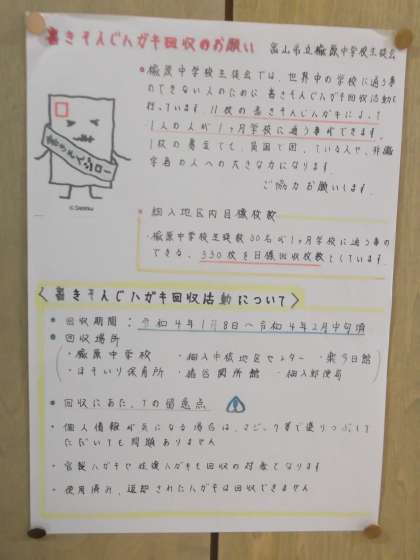 書きそんじハガキ回収のお願い 富山市立楡原中学校生徒会
• 楡原中学校生徒会では、世界中の学校に通う事
のできない人のために書きそんじハガキ回収活動を
行っています。11枚の書きそんじハガキによって
1人の人が1ヶ月学校に通う事ができます。
1枚の募金でも、貧困で困っている人や、非識
字者の人への大きな力になります。
ご協力お願いします。
• 細入地区内目標枚数
・楡原中学校生徒数30名が1ヶ月学校に通う事の
できる、330枚を目標回収枚数としています。
〈書きそんじハガキ回収活動について〉
• 回収期間：令和4年1月8日〜令和4年2月中旬頃
• 回収場所
・楡原中学校 ・細入中核地区センター ・楽今日館
・ほそいり保育所 ・猪谷関所館 ・細入郵便局
• 回収にあたっての留意点
・個人情報が気になる場合は、マジック等で塗りつぶして
ただいても問題ありません
・官製ハガキや往復ハガキも回収の対象となります
・使用済み、返却されたハガキは回収できません